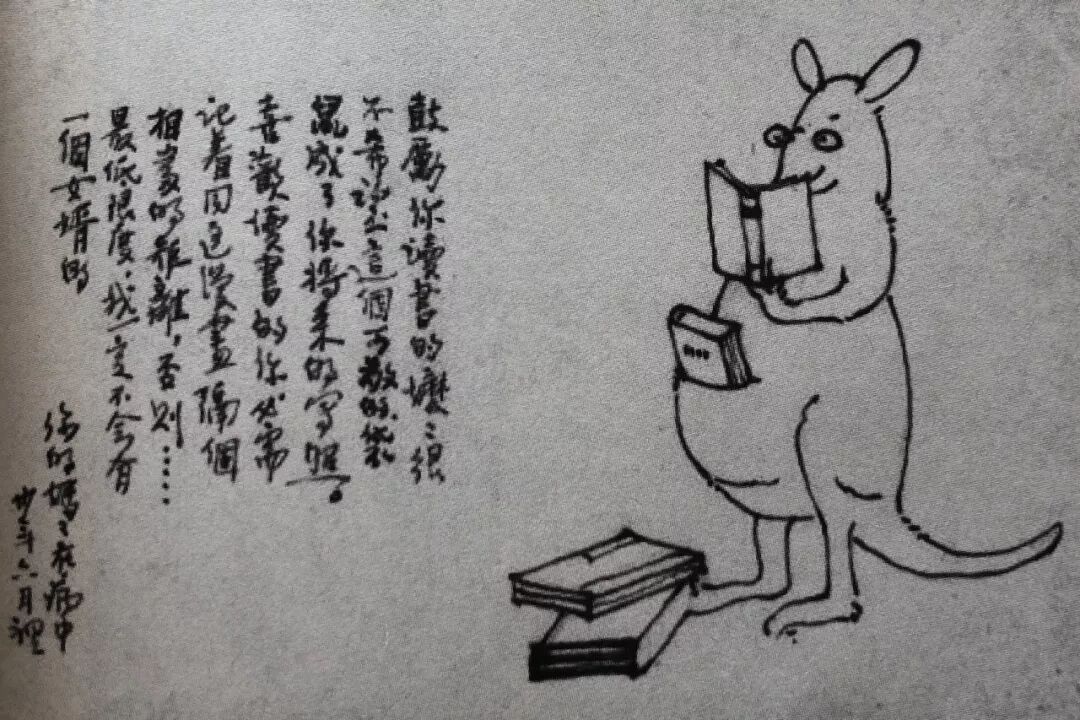 鼓勵你讀書的媽〻很
不希望這個可敬的袋
鼠成了你將来的写照。
喜歡讀書的你必需
记着同這漫畫隔個
相當的距離,否則……
最低限度,我一定不会有
一個女壻的
你的媽〻在病中
年六月裡